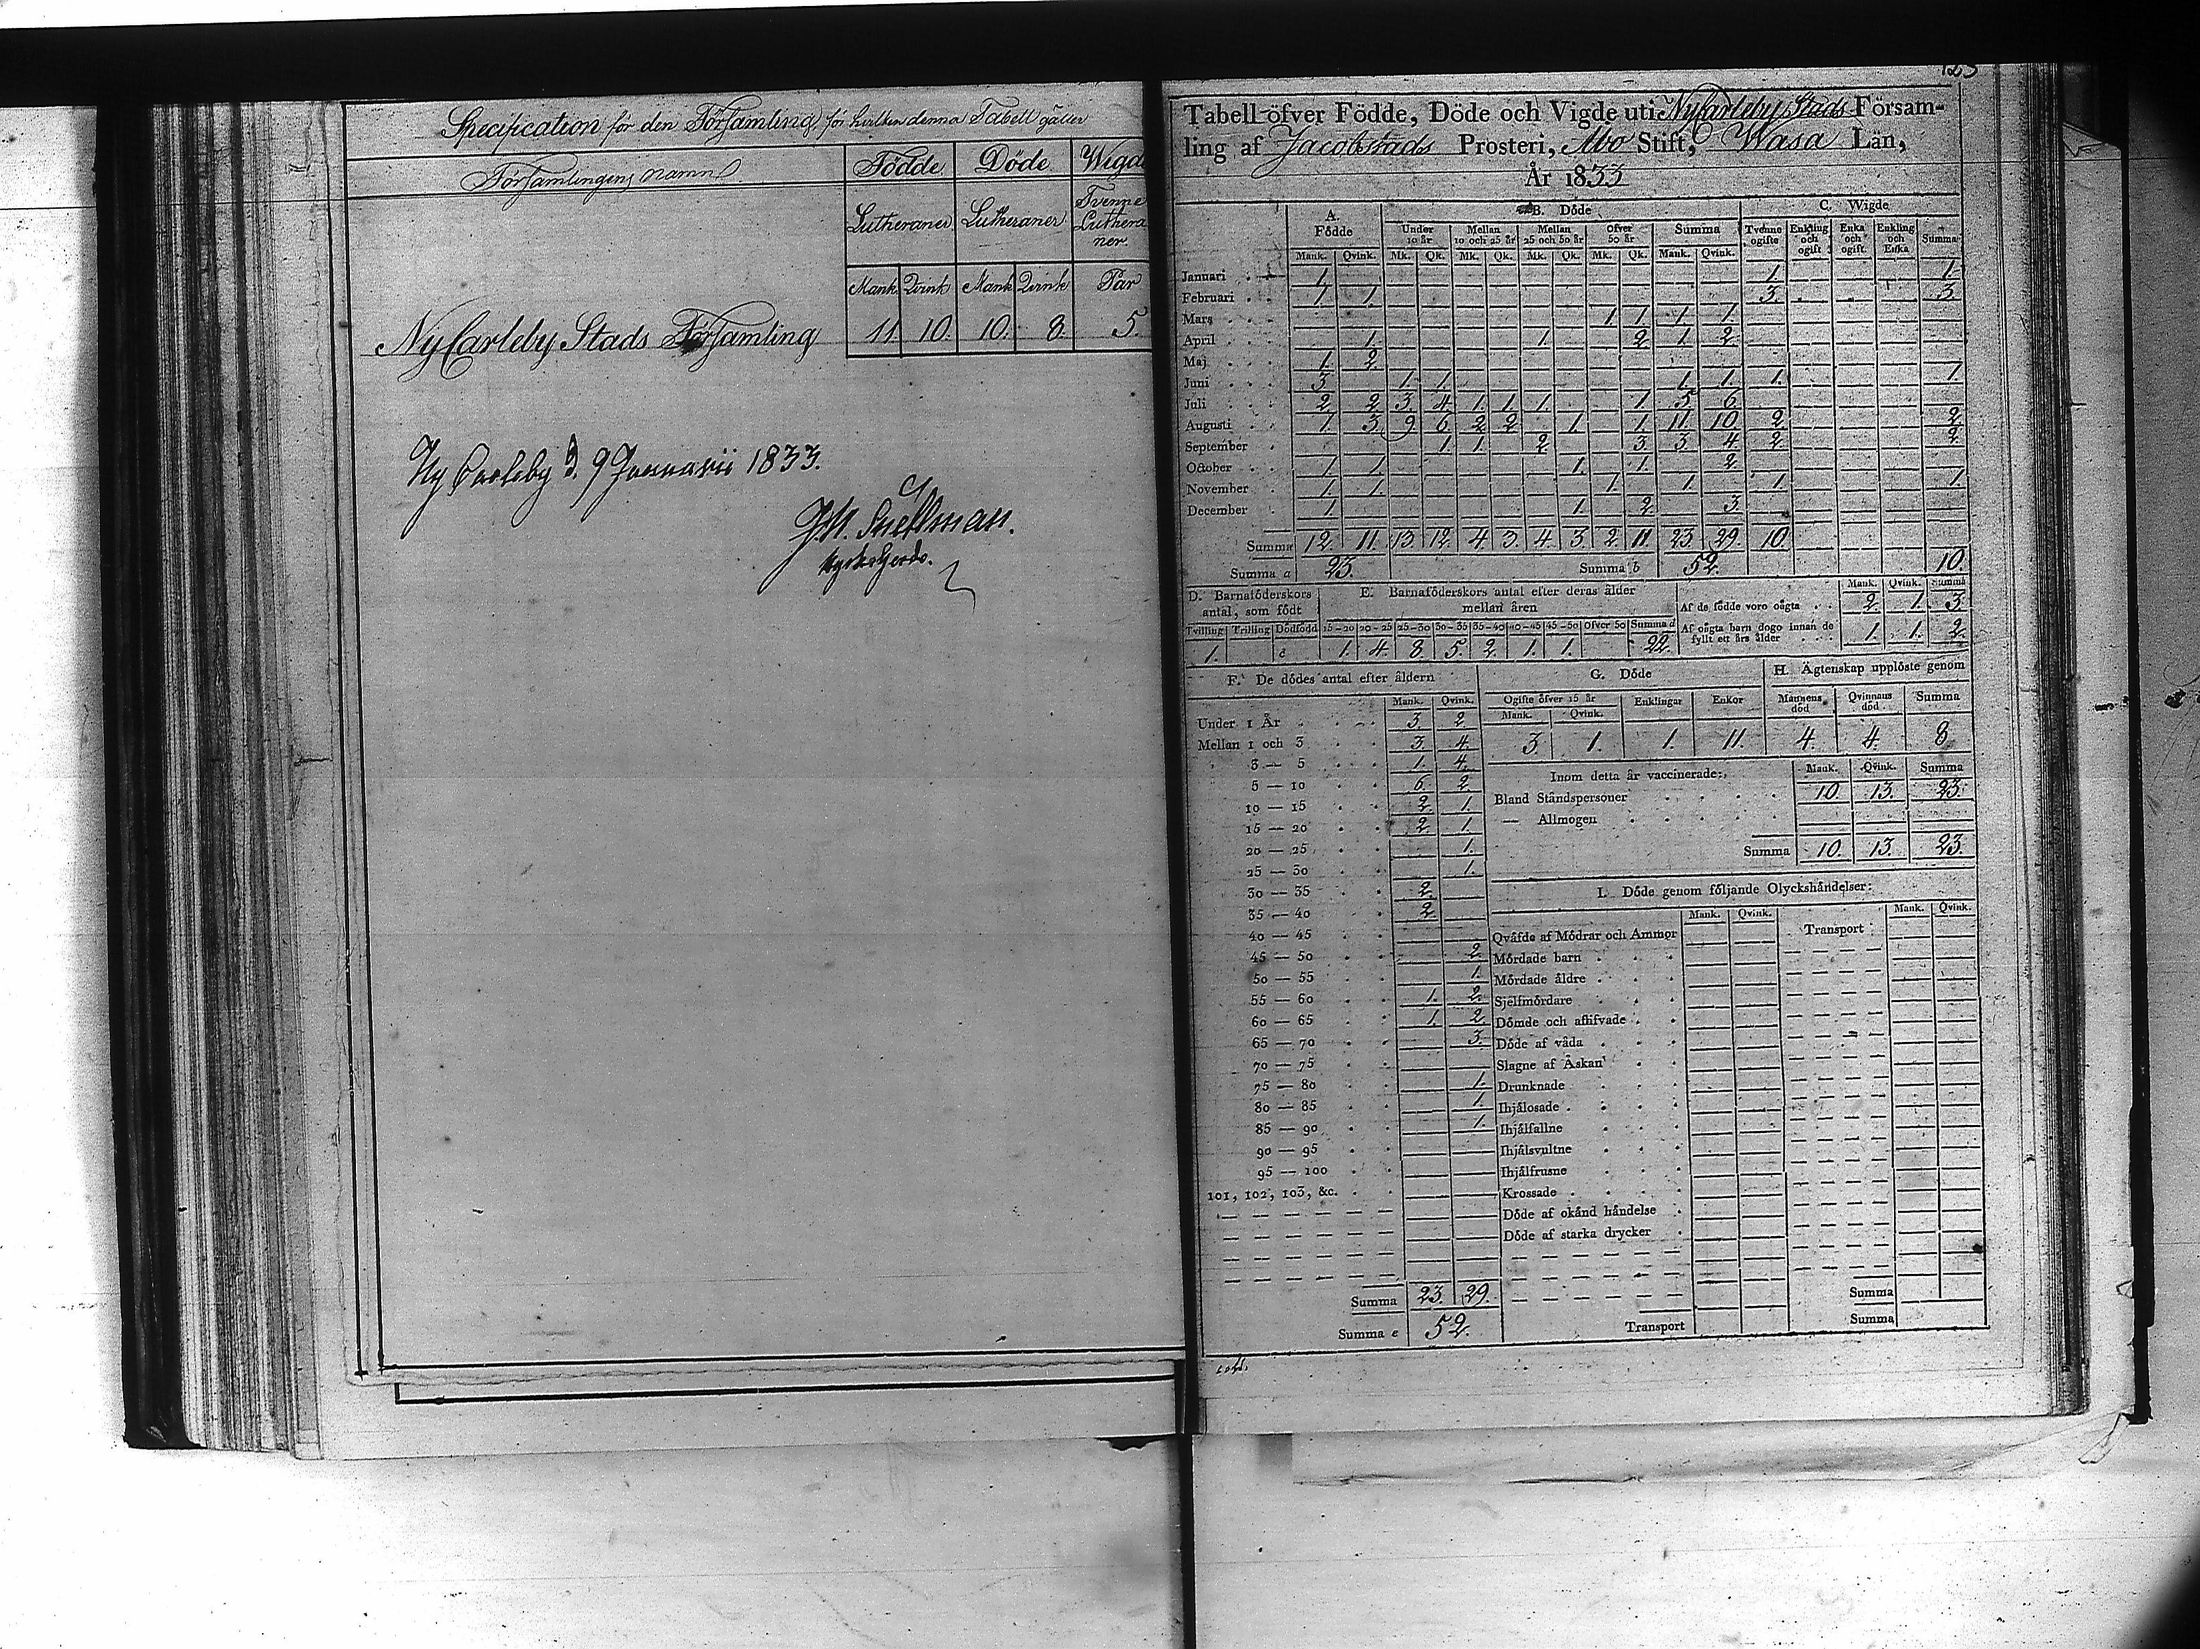 Specification för den Församling för hvilken denna Tabell gäller
Församlingens namn Födde Döde Wigde
Lutheraner Lutheraner Tvenne Lutheraner
Mank Qvink Mank Qvink Par
NyCarleby Stads Församling 11 10. 10. 8. 5.
Ny Carleby d. 9 Januarii 1833.
Snellman.
Kyrkoherde.
123
Tabell öfver Födde, Döde och Vigde uti NyCarleby Stads Försam-
ling af Jacobstads Prosteri, Åbo Stift, Wasa Län,
År 1833
A. Födde B. Döde C. Wigde
Under 10 år Mellan 10 och 25 år Mellan 25 och 50 år Öfver 50 år Summa Tvenne ogifte Enkling och ogift Enka och ogift Enkling och Enka Summa
Mank. Qvink. Mk. Qk. Mk. Qk. Mk. Qk. Mk. Qk. Mank. Qvink.
Januari 1. 1. 1.
Februari 1 1. 3. 3.
Mars 1 1 1 1
April 1. 1. 2 1. 2.
Maj 1. 2.
Juni 3 1. 1. 1. 1. 1. 1.
Juli 2. 2 3. 4. 1. 1. 1. 1 5 6
Augusti 1. 3. 9 6 2 2 1. 1 11 10 2 2
September 1. 1. 2. 3. 3 4 2. 2.
October 1 1. 1. 1. 2.
November 1. 1. 1. 1. 1. 1.
December 1. 1. 2. 3.
Summa 12. 11. 13. 12. 4. 3. 4. 3. 2. 11 23. 29. 10.
Summa a 23. Summa b 52. 10.
D. Barnaföderskors antal, som födt
Tvilling Trilling Dödfödd
1. c
E. Barnaföderskors antal efter deras ålder mellan åren
15-20 20-25 25-30 30-35 35-40 40-45 45-50 Öfver 50 Summa d
1. 4. 8. 5. 2. 1. 1. 22.
Mank. Qvink. Summa
Af de födde voro oägta 2. 1. 3.
Af oägta barn dogo innan de fyllt ett års ålder 1. 1. 2.
F. De dödes antal efter åldern
Mank. Qvink.
Under 1 År 3. 2.
Mellan 1 och 3 3. 4.
3 — 5 1. 4.
5 — 10 6. 2.
10 — 15 2. 1.
15 — 20 2. 1.
20 — 25 1.
25 — 30 1.
30 — 35 2.
35 — 40 2.
40 — 45
45 — 50 2.
50 — 55 1.
55 — 60 1. 2.
60 — 65 1. 2.
65 — 70 3.
70 — 75
75 — 80 1.
80 — 85 1.
85 — 90 1.
90 — 95
95 — 100
101, 102, 103, &c.
Summa 23. 29.
Summa e 52.
G. Döde
Ogifte öfver 15 år Enklingar Enkor
Mank. Qvink.
3 1. 1. 11.
H. Ägtenskap upplöste genom
Mannens död Qvinnans död Summa
4. 4. 8
Inom detta år vaccinerade: Mank. Qvink. Summa
Bland Ståndspersoner 10. 13. 23.
— Allmogen
Summa 10. 13. 23.
I. Döde genom följande Olyckshändelser:
Mank. Qvink. Mank. Qvink.
Qväfde af Mödrar och Ammor Transport
Mördade barn
Mördade äldre
Sjelfmördare
Dömde och aflifvade
Döde af våda
Slagne af Åskan
Drunknade
Ihjälosade
Ihjälfallne
Ihjälsvultne
Ihjälfrusne
Krossade
Döde af okänd händelse
Döde af starka drycker
Summa
Transport Summa